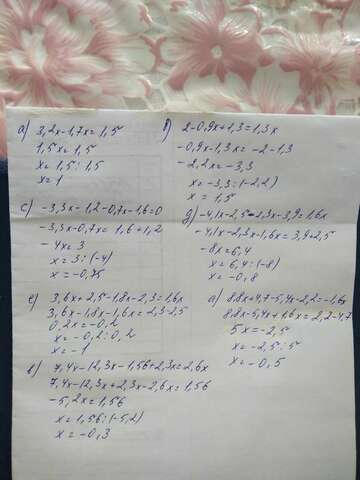 а) 3,2x-1,7x=1,5
1,5x=1,5
x=1,5:1,5
x=1
в) 2-0,9x+1,3=1,3x
-0,9x-1,3x=-2-1,3
-2,2x=-3,3
x=-3,3:(-2,2)
x=1,5
с) -3,3x-1,2-0,7x-1,6=0
-3,3x-0,7x=1,6+1,2
-4x=3
x=3:(-4)
x=-0,75
д) -4,1x-2,5-2,3x-3,9=1,6x
-4,1x-2,3x-1,6x=3,9+2,5
-8x=6,4
x=6,4:(-8)
x=-0,8
е) 3,6x+2,5-1,8x-2,3=1,6x
3,6x-1,8x-1,6x=2,3-2,5
0,2x=-0,2
x=-0,2:0,2
x=-1
а) 8,8x+4,7-5,4x-2,2=-1,6x
8,8x-5,4x+1,6x=2,2-4,7
5x=-2,5
x=-2,5:5
x=-0,5
в) 7,4x-12,3x-1,56+2,3x=2,6x
7,4x-12,3x+2,3x-2,6x=1,56
-5,2x=1,56
x=1,56:(-5,2)
x=-0,3